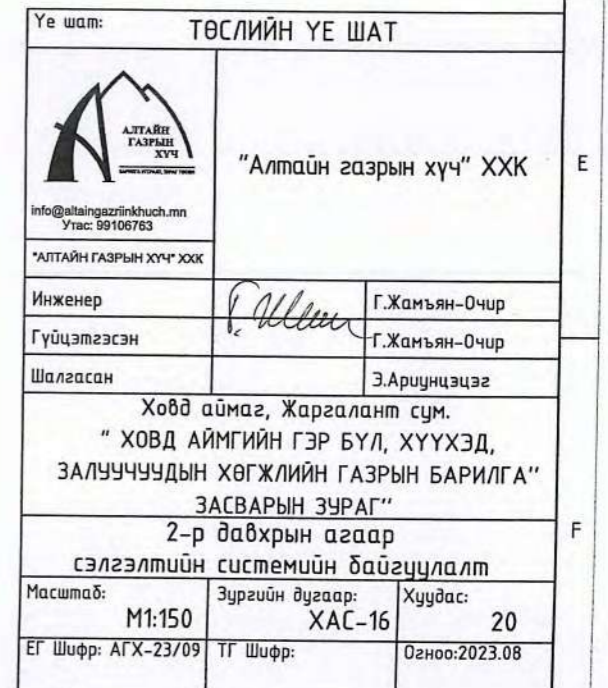 Үе шат: ТӨСЛИЙН ҮЕ ШАТ
АЛТАЙН
ГАЗРЫН
ХҮЧ
info@altaingazriinkhuch.mn
Утас: 99106763
"АЛТАЙН ГАЗРЫН ХҮЧ" ХХК
"Алтайн газрын хүч" ХХК
E
Инженер Г.Жамъян-Очир
Гүйцэтгэсэн Г.Жамъян-Очир
Шалгасан Э.Ариунцэцэг
Ховд аймаг, Жаргалант сум.
" ХОВД АЙМГИЙН ГЭР БҮЛ, ХҮҮХЭД,
ЗАЛУУЧУУДЫН ХӨГЖЛИЙН ГАЗРЫН БАРИЛГА"
ЗАСВАРЫН ЗУРАГ"
F
2-р давхрын агаар
сэлгэлтийн системийн байгуулалт
Масштаб: Зургийн дугаар: Хуудас:
М1:150 ХАС-16 20
ЕГ Шифр: АГХ-23/09 ТГ Шифр: Огноо:2023.08